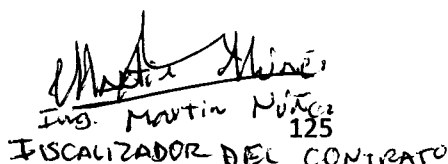 Martin Núñez
Ing. Martin Núñez
125
FISCALIZADOR DEL CONTRATO